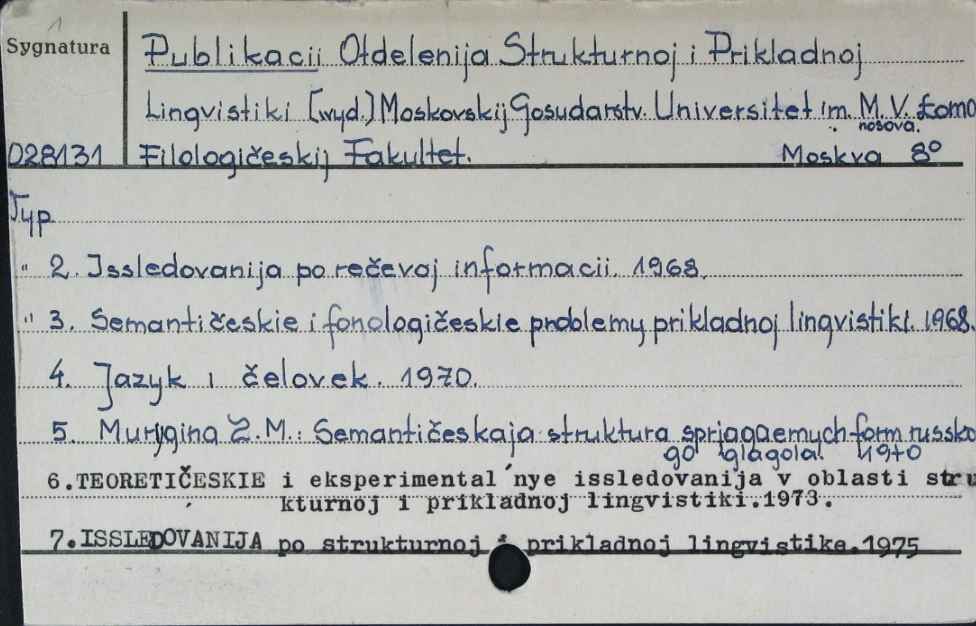 1
Sygnatura
Publikacii Otdelenija Strukturnoj i Prikladnoj
Lingvistiki [wyd.] Moskovskij Gosudarstv. Universitet im. M.V. Łomo
nosova.
028131 Filologičeskij Fakultet. Moskva 8°
Typ
" 2. Issledovanija po rečevoj informacii. 1968.
" 3. Semantičeskie i fonologičeskie problemy prikladnoj lingvistiki. 1968.
4. Jazyk i čelovek. 1970.
5. Murygina Z.M.: Semantičeskaja struktura sprjagaemych form russko
go glagola. 1970
6.TEORETIČESKIE i eksperimental'nye issledovanija v oblasti stru
kturnoj i prikladnoj lingvistiki.1973.
7.ISSLEDOVANIJA po strukturnoj i prikladnoj lingvistike.1975